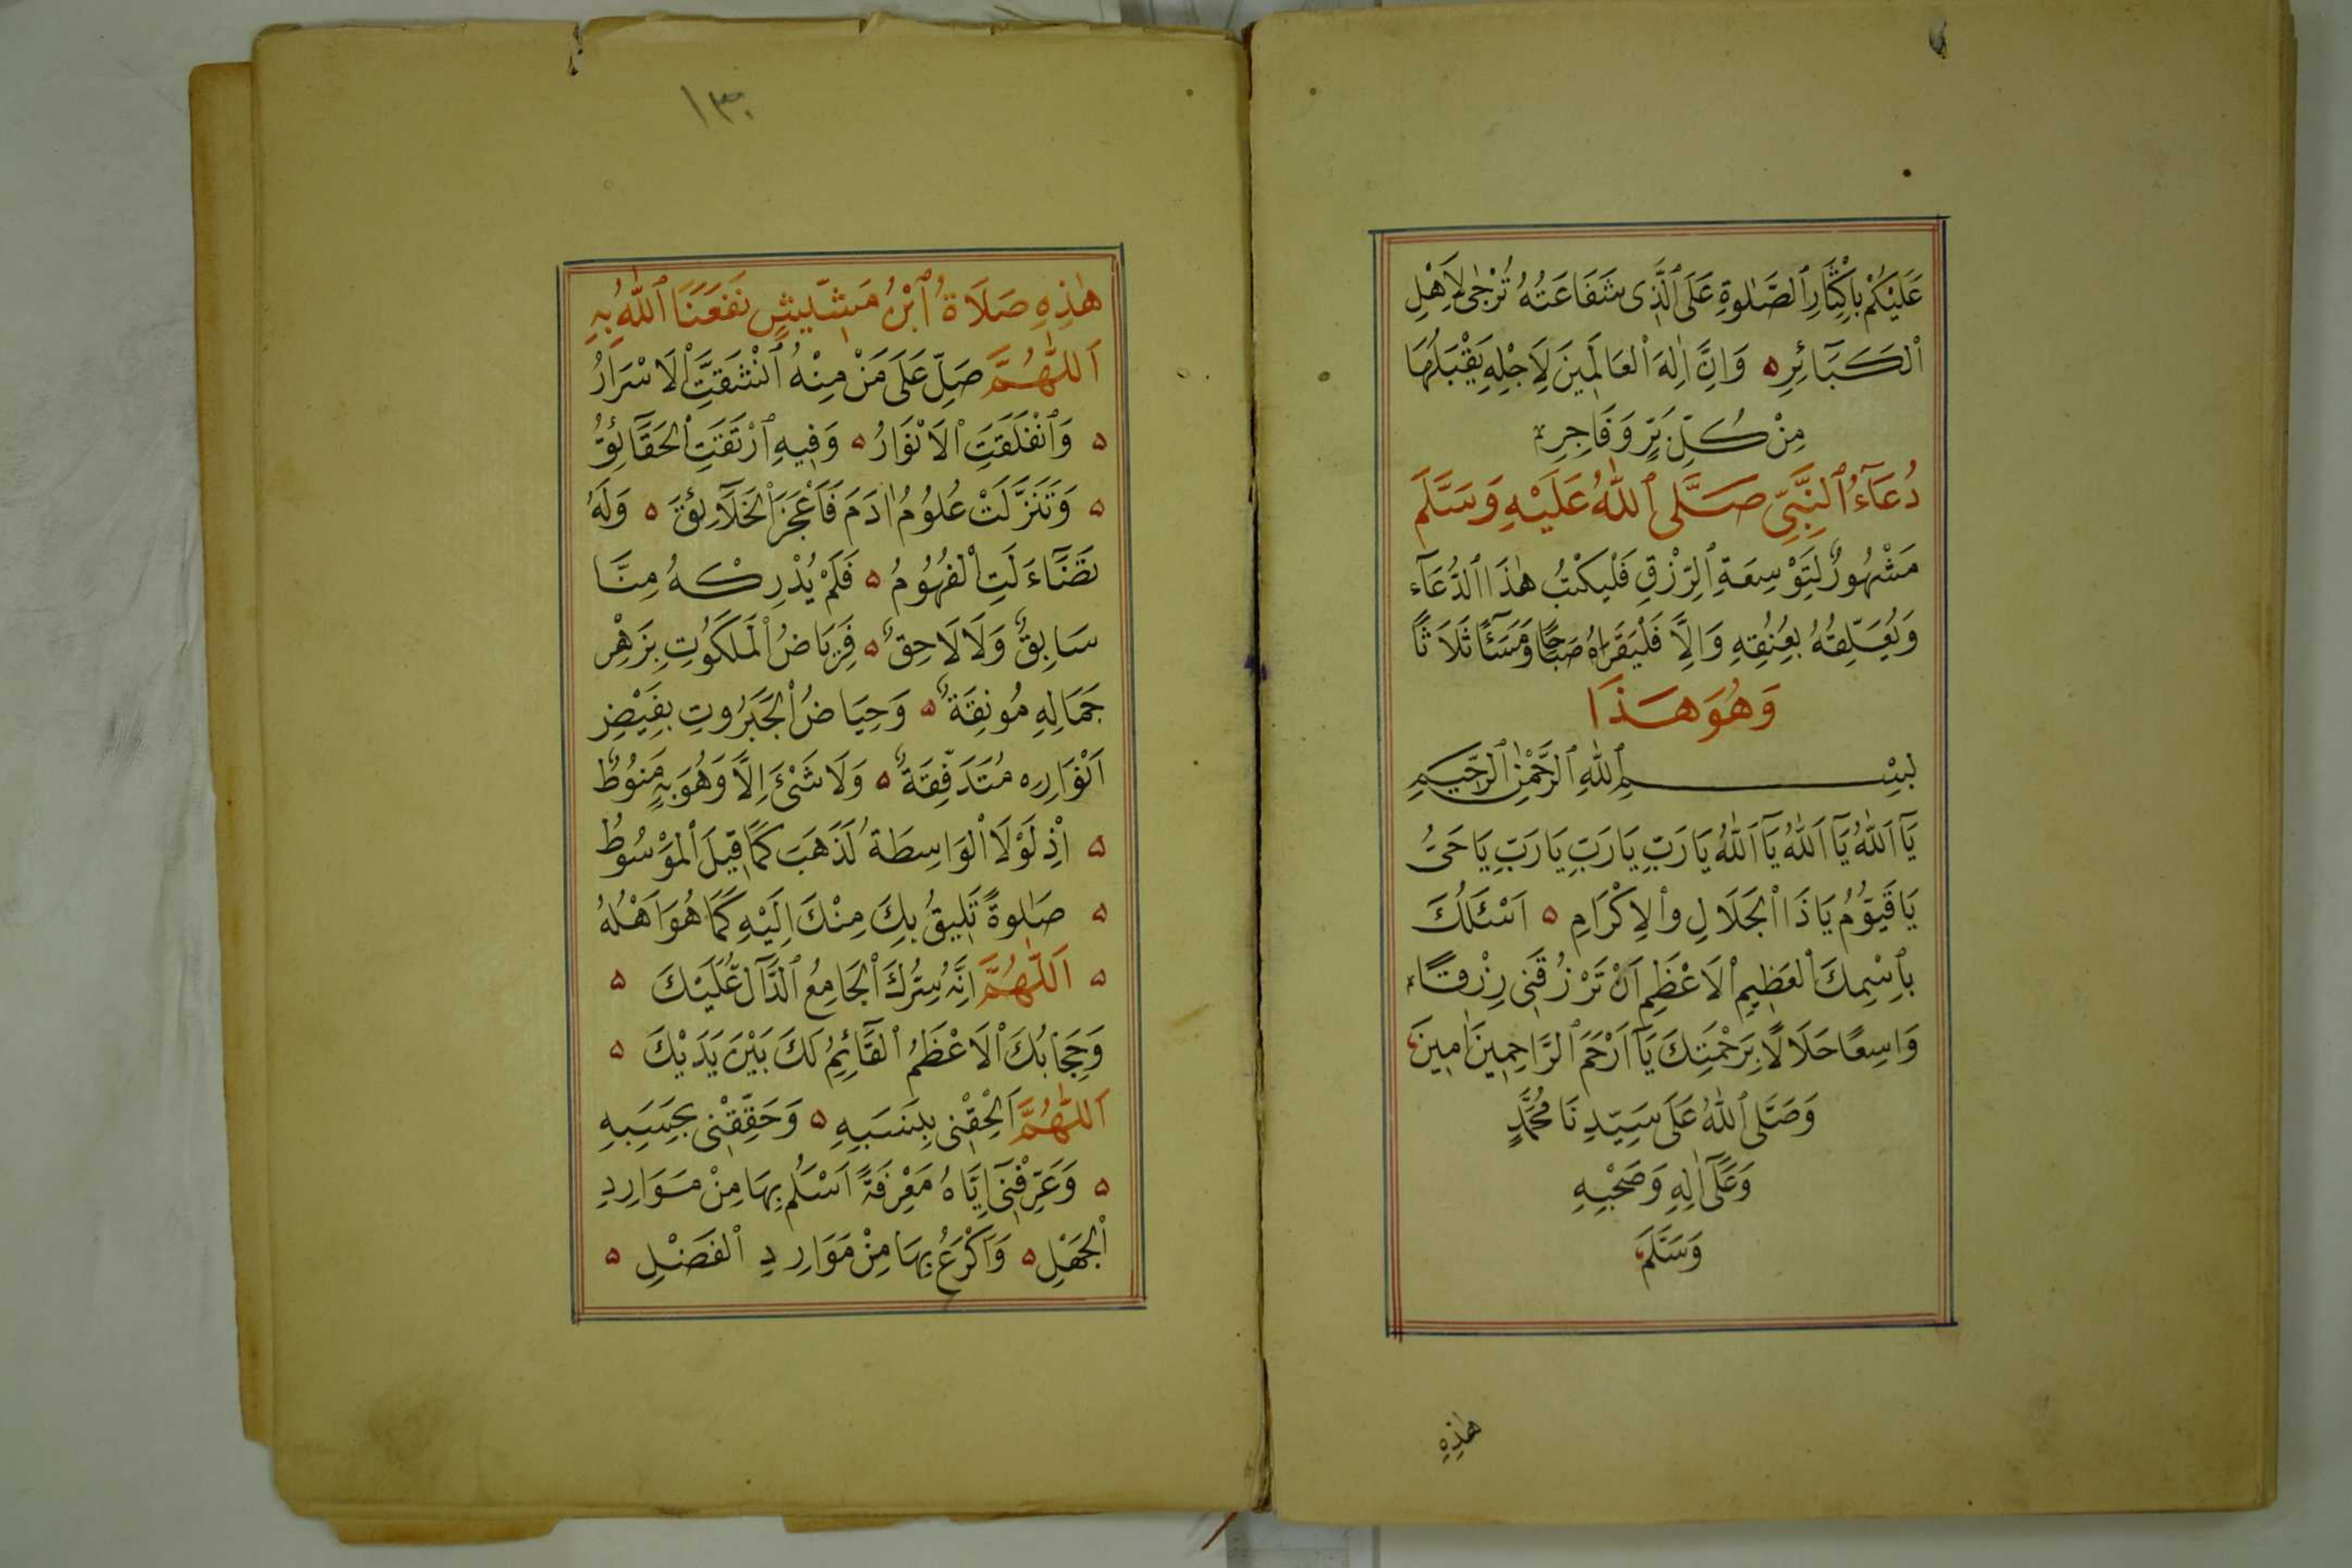 عَلَيْكُمْ بِاِكْثَارِ ٱلصَّلٰوةِ عَلَى ٱلَّذِى شَفَاعَتُهُ تُرْجٰى لِاَهْلِ
ٱلْكَبَآئِرِ ۵ وَاِنَّ اِلٰهَ ٱلْعَالَمِينَ لِاَجْلِهِ يَقْبَلُهَا
مِنْ كُلِّ بَرٍّ وَفَاجِرِ
دُعَآءُ ٱلنَّبِىِّ صَلَّى ٱللّٰهُ عَلَيْهِ وَسَلَّمَ
مَشْهُورٌ لِتَوْسِعَةِ ٱلرِّزْقِ فَلْيَكْتُبْ هٰذَا ٱلدُّعَآءَ
وَيُعَلِّقُهُ بِعُنُقِهِ وَاِلَّا فَلْيَقْرَاهُ صَبَاحًا وَمَسَآءً ثَلَاثًا
وَهُوَ هَذَا
بِسْمِ ٱللّٰهِ ٱلرَّحْمٰنِ ٱلرَّحِيمِ
يَآ اَللّٰهُ يَآ اَللّٰهُ يَآ اَللّٰهُ يَارَبِّ يَارَبِّ يَارَبِّ يَاحَىُّ
يَاقَيُّومُ يَاذَا ٱلْجَلَالِ وٱلْاِكْرَامِ ۵ اَسْئَلُكَ
بِٱسْمِكَ ٱلْعَظِيمِ ٱلْاَعْظَمِ اَنْ تَرْزُقَنِى رِزْقًا
وَاسِعًا حَلَالًا بِرَحْمَتِكَ يَآ اَرْحَمَ ٱلرَّاحِمِينَ اٰمِينَ
وَصَلَّى ٱللّٰهُ عَلَى سَيِّدِنَا مُحَمَّدٍ
وَعَلَىٓ اٰلِهِ وَصَحْبِهِ
وَسَلَّمَ
هٰذِهِ
١٣٠
هٰذِهِ صَلَاةُ ٱبْنُ مَشِّيشٍ نَفَعَنَا ٱللّٰهُ بِهِ
اَللّٰهُمَّ صَلِّ عَلَى مَنْ مِنْهُ ٱنْشَقَّتِ ٱلْاَسْرَارُ
۵ وَٱنْفَلَقَتِ ٱلْاَنْوَارُ ۵ وَفِيهِ ٱرْتَقَتِ ٱلْحَقَآئِقُ
۵ وَتَنَزَّلَتْ عُلُومُ اٰدَمَ فَاَعْجَزَ ٱلْخَلَآئِقَ ۵ وَلَهُ
تَضَآءَلَتِ ٱلْفُهُومُ ۵ فَلَمْ يُدْرِكْهُ مِنَّا
سَابِقٌ وَلَا لَاحِقٌ ۵ فَرِيَاضُ ٱلْمَلَكُوتِ بِزَهْرِ
جَمَالِهِ مُونِقَةٌ ۵ وَحِيَاضُ ٱلْجَبَرُوتِ بِفَيْضِ
اَنْوَارِهِ مُتَدَفِّقَةٌ ۵ وَلَا شَىْءَ اِلَّا وَهُوَ بِهِ مَنُوطٌ
۵ اِذْ لَوْلَا ٱلْوَاسِطَةُ لَذَهَبَ كَمَا قِيلَ ٱلْمَوْسُوطُ
۵ صَلٰوةً تَلِيقُ بِكَ مِنْكَ اِلَيْهِ كَمَا هُوَ اَهْلُهُ
۵ اَللّٰهُمَّ اِنَّهُ سِرُّكَ ٱلْجَامِعُ ٱلدَّآلُّ عَلَيْكَ ۵
وَحِجَابُكَ ٱلْاَعْظَمُ ٱلْقَآئِمُ لَكَ بَيْنَ يَدَيْكَ ۵
اَللّٰهُمَّ اَلْحِقْنِى بِنَسَبِهِ ۵ وَحَقِّقْنِى بِحَسَبِهِ
۵ وَعَرِّفْنِىٓ اِيَّاهُ مَعْرِفَةً اَسْلَمُ بِهَا مِنْ مَوَارِدِ
ٱلْجَهْلِ ۵ وَاَكْرَعُ بِهَا مِنْ مَوَارِدِ ٱلْفَضْلِ ۵